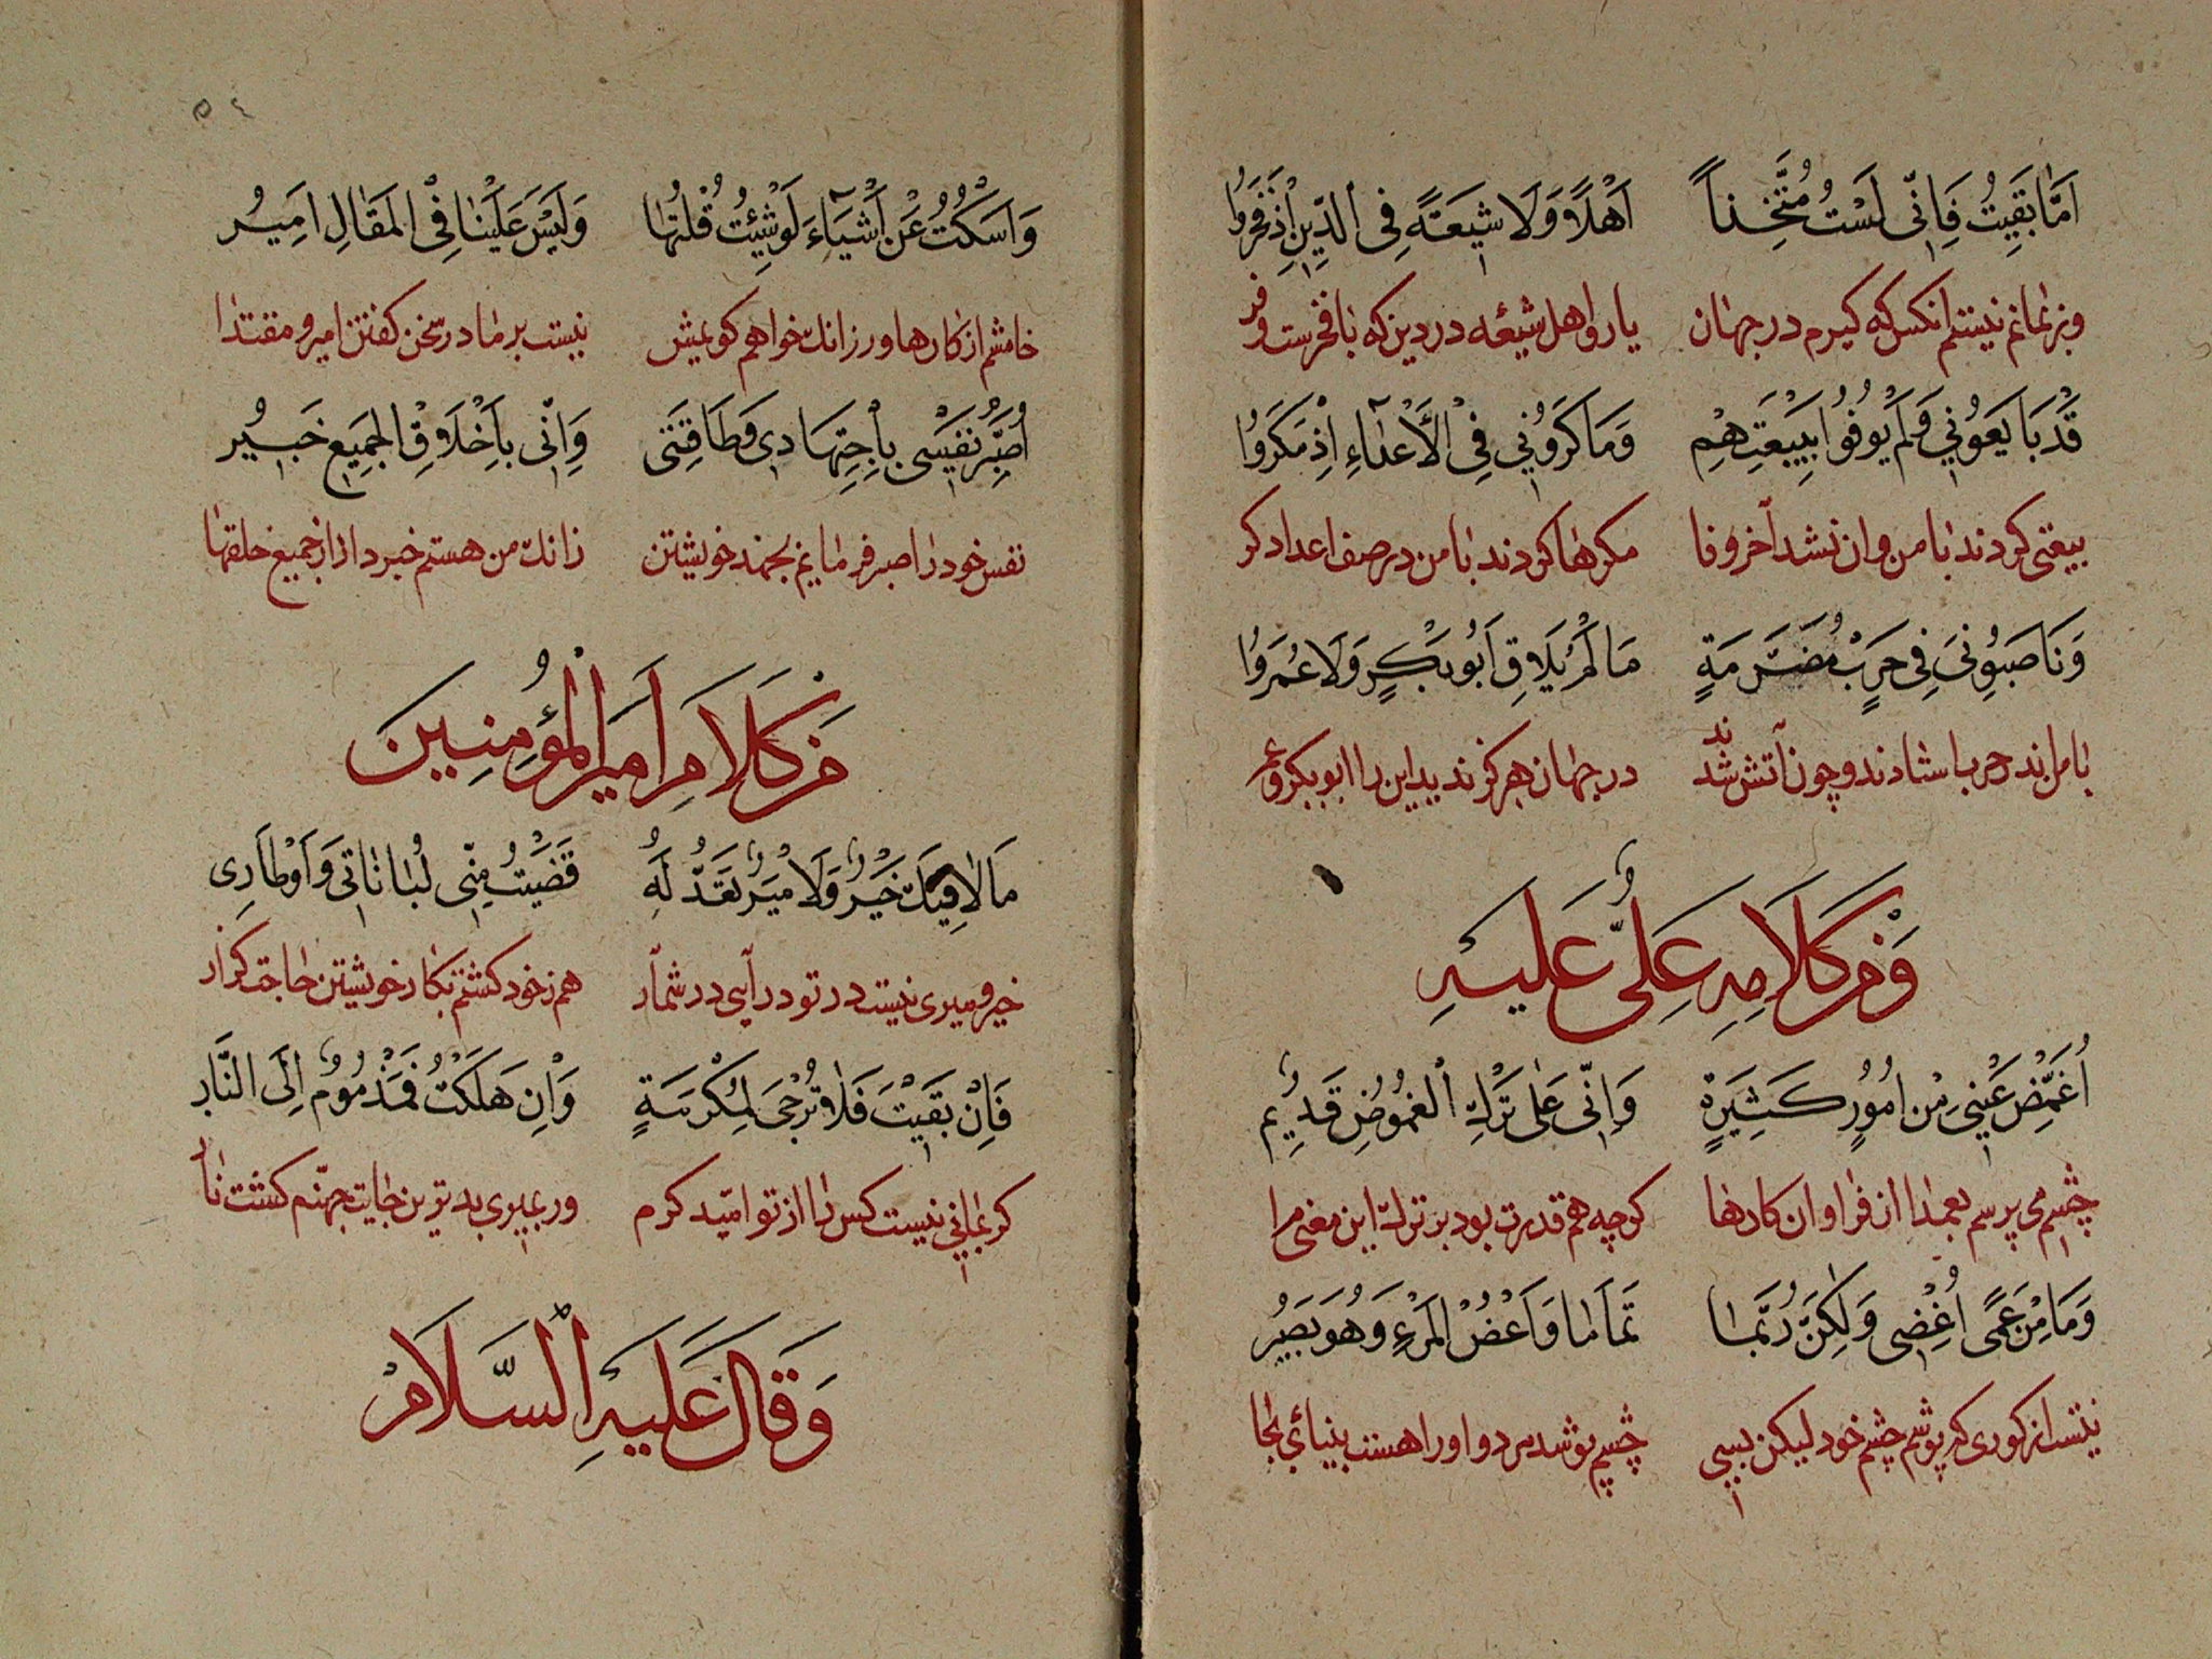 اَمَّا بَقَيِتُ فَاِنّى لَسْتُ مُتَّخِذاً اَهْلاً وَلَا شيَعَةً فِى الدِّينِ اِذْ فَجَرُوا
وبر نمانم نيستم انكس كه كيرم در جهان يار و اهل شيعه در دين كه با فخرست و فر
قَدْ بَايَعوُنى وَلَمْ يُوفُوا بِبَيْعَتِهِمْ وَمَاكَرَوُنى فِى الْأَعْدَاءِ اِذْ مَكَرَوُا
بيعتى كردند با من وان نشد آخر وفا مكرها كردند با من در صف اعدا دكر
وَنَاصَبوُنىَ فِى حَرْبٍ مُضَرَّمَةٍ مَا لَمْ يُلَاقِ اَبُو بَكْرٍ وَلَا عُمَرَوُا
با من اند حرب استادند و چون آتش شدند در جهان هركز نديد اين را ابو بكر و عمر
وَمِنْ كَلَامِهِ عَلِىٌّ عَلَيْهِ
اُغَمِّضُ عَيْنىِ مْن اُمُورٍ كَثيَرةٍ وَاِنّى عَلىٰ تَرْكِ الْغُمُوضِ قَدِيم
چشم مى پرسم بعمدا از فراوان كارها كرچه هم قدرت بود بر ترك اين معنى مرا
وَمَا مِنْ عَمىً اُغْضِى وَلٰكِنَّ رُبَّمَا تَمَامَا وَاَغْضُ المَرْءِ وَهُوَ بَصِيُر
نيست از كورى كه پوشم چشم خود ليكن بسى چشم پوشد مرد و او را هست بينائى بجا
وَاَسْكُتُ عَنْ اَشْيَآءَ لَوْ شِئْتُ قُلْتُهَا وَلَيْسَ عَلَيْنَا فِى الْمَقَالِ اَمِيُر
خامشم از كارها ور زانك خواهم كويمش نيست بر ما در سخن كفتن امير و مقتدا
اُصَبِّرُ نَفْسَى بِاْجِتِهَادِى وَطَاقَتِى وَاِنّى بِاَخْلَاقِ الْجَمِيَعِ خَبيُر
نفس خود را صبر فرمايم بجهد خويشتن زانك من هستم خبردار از جميع خلقها
مْن كَلَامِ اَميِرَ الْمُؤمِنِينَ
مَا لاٰ فِيكَ خَيْرٌ وَلَا مَيْرٌ تَعَدُّ لَهُ قَضَيْتُ مِنّىِ لُبَانَاتِى وَاَوْطَارِى
خير و ميرى نيست در تو در آيى در شمار هم ز خود كشتم بكار خويشتن حاجت كزار
فَاِنْ بَقَيْتَ فَلَا تُرْجَى لِمَكْرُمَةٍ وَاِنْ هَلَكْتُ فَمَذْمُومٌ اِلَى النَّارِ
كر بمانى نيست كس را از تو اميد كرم ور بميرى بدترين جايت جهنم كشت نار
وَقَالَ عَلَيْهِ السَّلَامْ